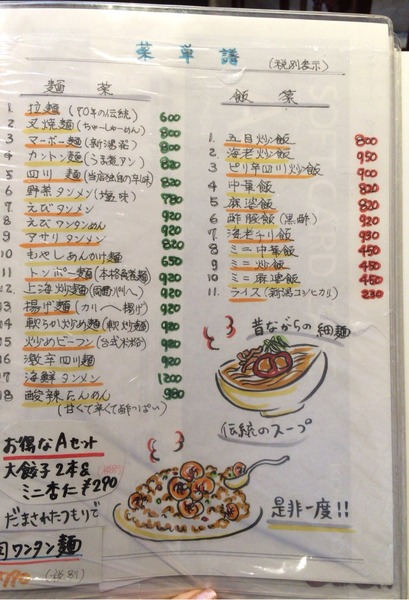 菜単譜
(税別表示)
麺菜
1. 拉麺 (70年の伝統) 600
2 叉焼麺 (ちゃーしゅーめん) 800
3 マーボー麺 (新潟発) 800
4 カントン麺 (うま煮アン) 820
5 四川麺 (当店独自の辛味) 820
6 野菜タンメン (塩味) 780
7 えびタンメン 920
8 えびワンタンめん 920
9 アサリタンメン 820
10 もやしあんかけ麺 650
11 トンポー麺 (本格食養麺) 930
12. 上海炒麺 920
13 揚げ麺 (カリー揚げ) 920
14 軟らか炒め麺 (軟炒麺) 920
15 炒めビーフン (台式米粉) 920
16 激辛四川麺 980
17 海鮮タンメン 1200
18 酸辣たんめん 980
(甘くて辛くて酸っぱい)
飯菜
1. 五目炒飯 800
2. 海老炒飯 950
3. ピリ辛四川炒飯 900
4 中華飯 820
5 麻婆飯 820
6 酢豚飯 (黒酢) 920
7 海老チリ飯 930
8 ミニ中華飯 450
9 ミニ炒飯 450
10 ミニ麻婆飯 450
11 ライス (新潟コシヒカリ) 230
昔ながらの細麺
伝統のスープ
お得なAセット
大餃子2本&
(税別)
ミニ杏仁 ¥290
だまされたつもりで
ワンタン麺
(税別)
是非一度!!